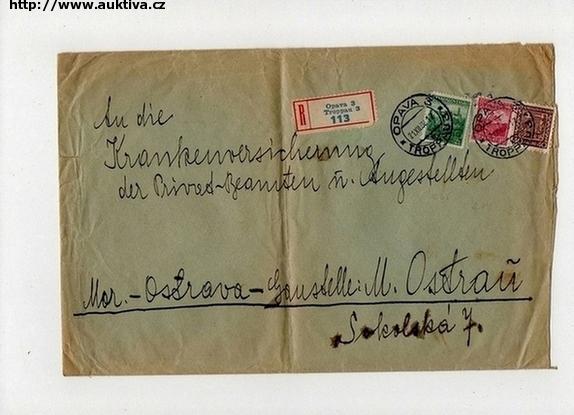 http://www.auktiva.cz
R
Opava 3
Troppau 3
113
OPAVA 3
TROPPAU
An die
Krankenversicherung
der Privat-Beamten u. Angestellten
Mor.-Ostrava- Gaustelle: M. Ostrau
Sokolská 7.